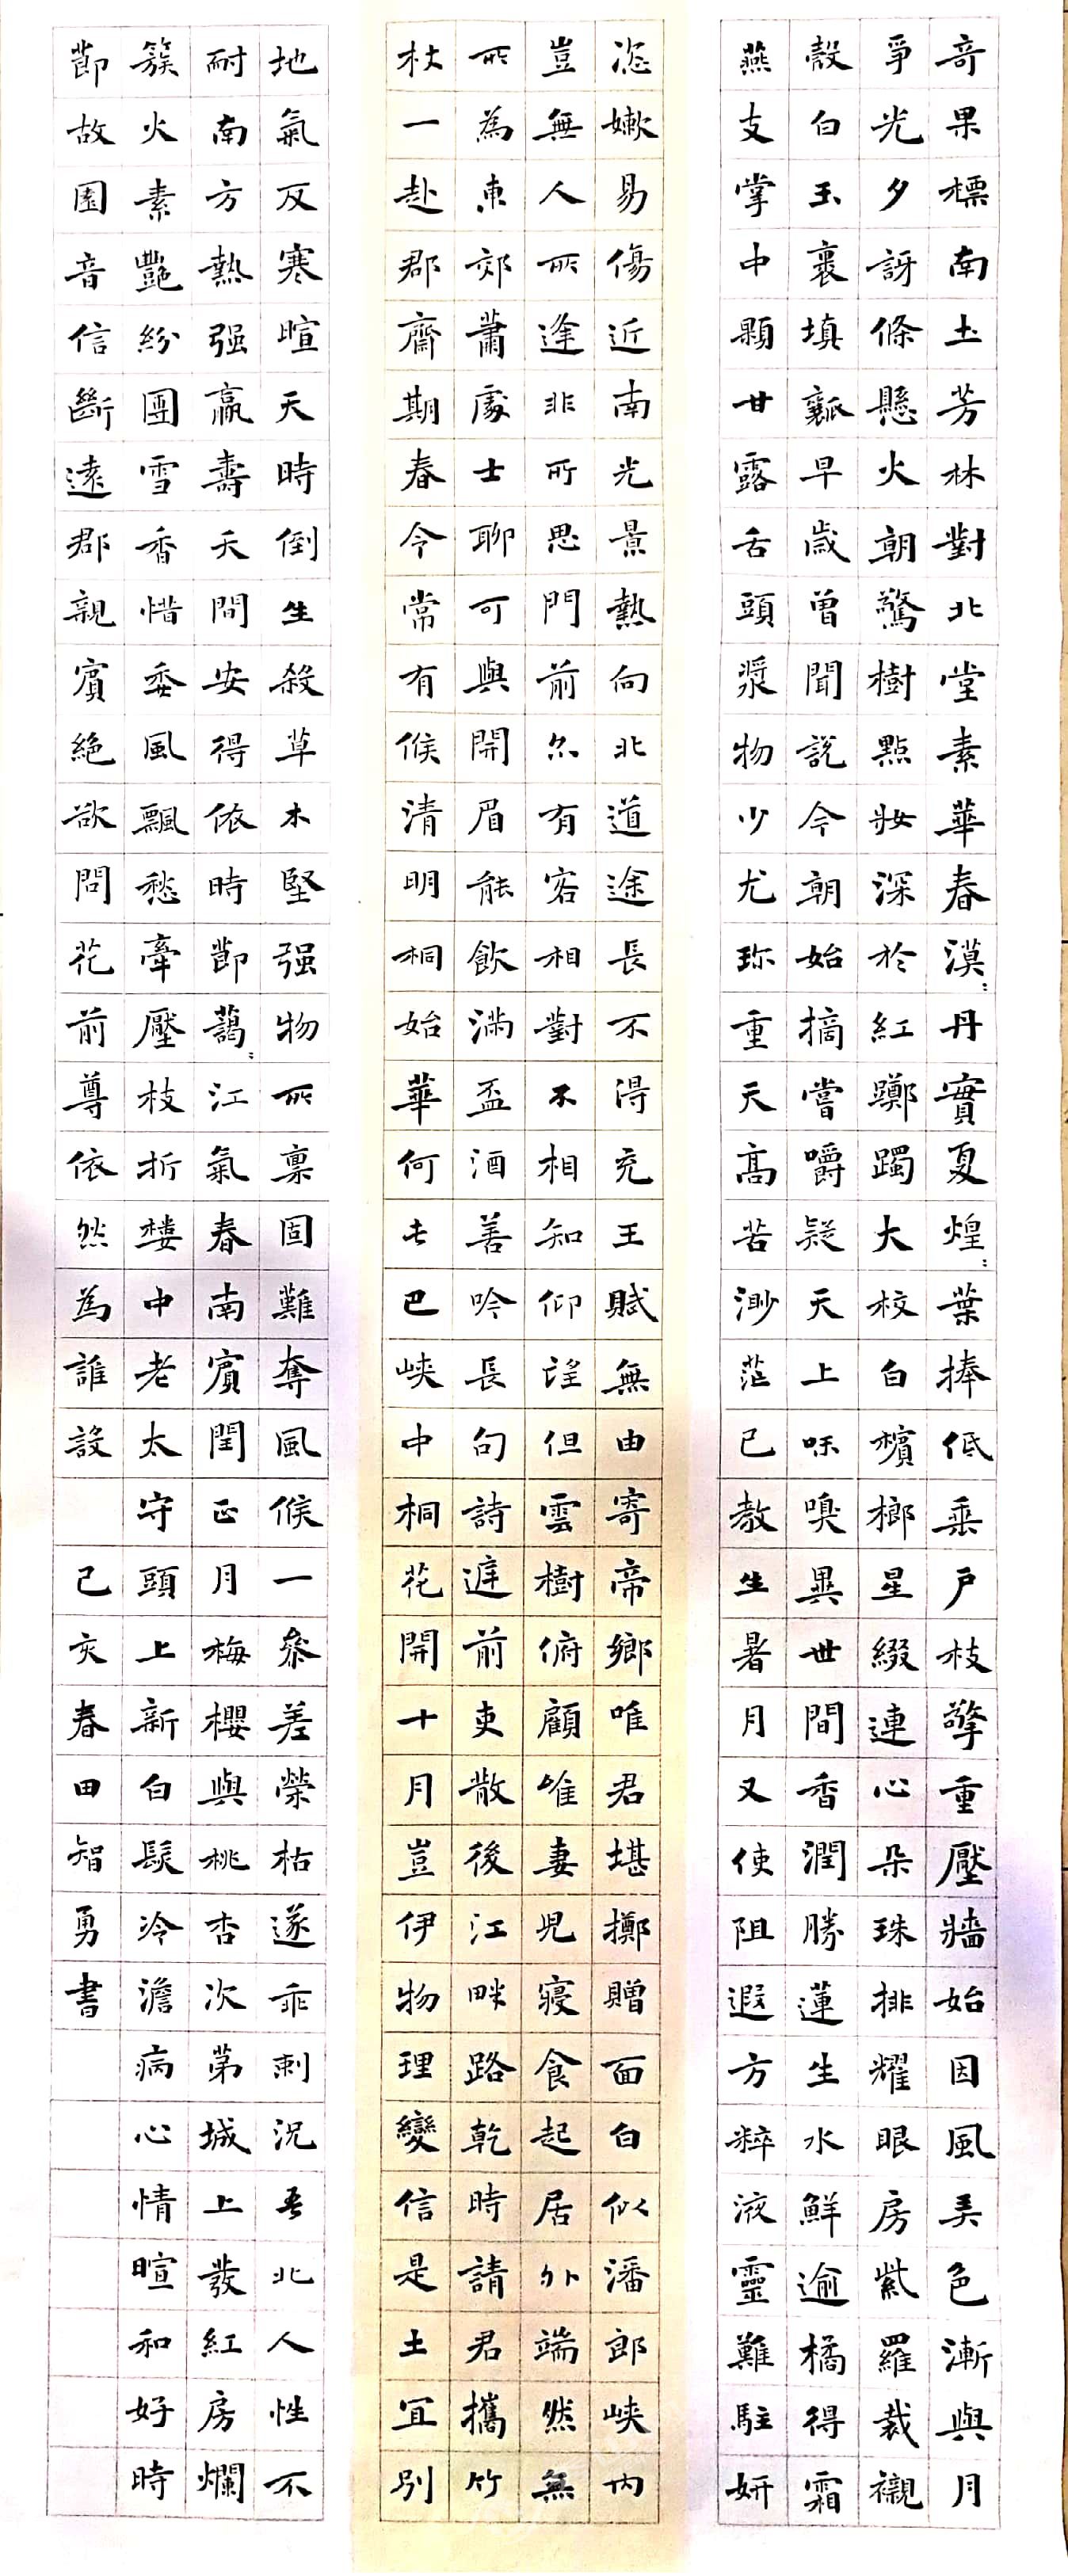 奇果標南土芳林對北堂素華春漠々丹實夏煌々葉捧低垂戶枝擎重壓牆始因風弄色漸與月
爭光夕訝條懸火朝驚樹點妝深於紅躑躅大校白檳榔星綴連心朵珠排耀眼房紫羅裁襯
殼白玉裹填瓤早歲曾聞說今朝始摘嘗嚼疑天上味嗅異世間香潤勝蓮生水鮮逾橘得霜
燕支掌中顆甘露舌頭漿物少尤珍重天高苦渺茫已教生暑月又使阻遐方粹液靈難駐妍
恣嫩易傷近南光景熱向北道途長不得充王賦無由寄帝鄉唯君堪擲贈面白似潘郎峽內
豈無人所逢非所思門前尔有客相對不相知仰望但雲樹俯顧唯妻兒寢食起居外端然無
所為東郊蕭處士聊可與開眉能飲滿盃酒善吟長句詩庭前吏散後江畔路乾時請君攜竹
杖一赴郡齋期春令常有候清明桐始華何此巴峽中桐花開十月豈伊物理變信是土宜別
地氣反寒暄天時倒生殺草木堅强物所稟固難奪風候一參差榮枯遂乖剌況吾北人性不
耐南方熱强羸壽夭間安得依時節藹々江氣春南賓閏正月梅櫻與桃杏次第城上發紅房爛
簇火素艷紛團雪香惜委風飄愁牽壓枝折樓中老太守頭上新白髮冷澹病心情暄和好時
節故園音信斷遠郡親賓絕欲問花前尊依然為誰設 己亥春田智勇書